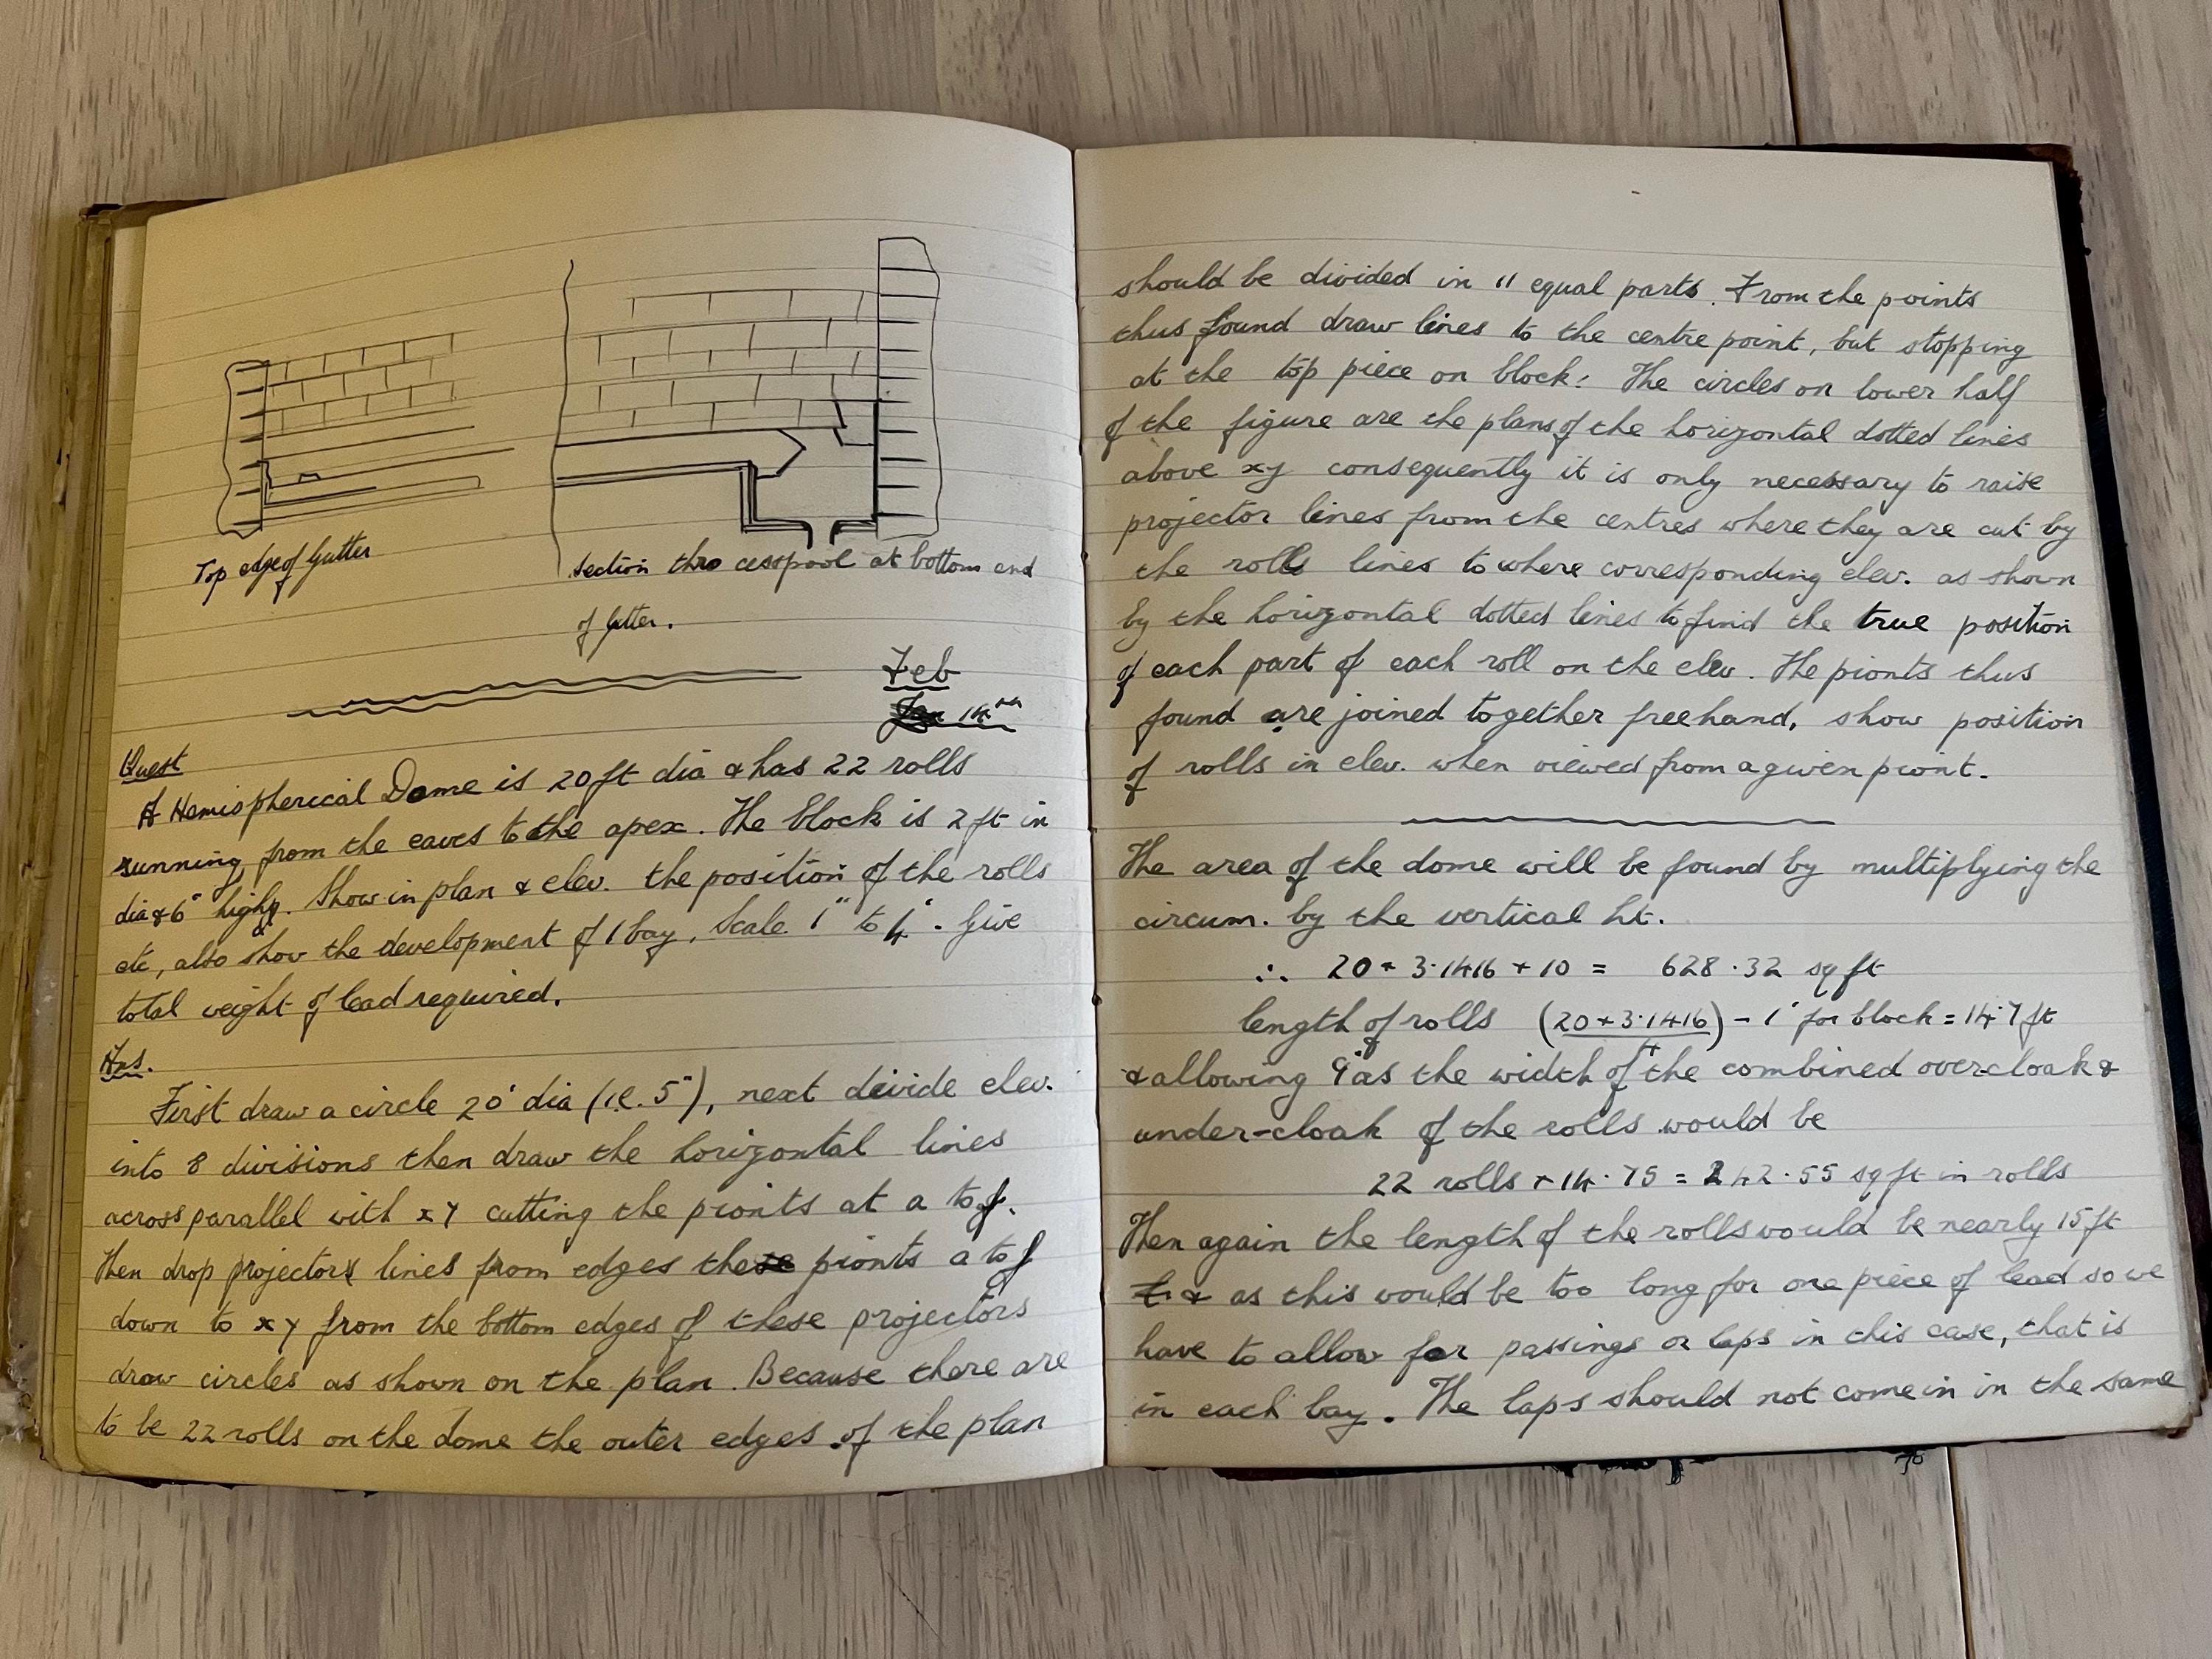 Top edge of Gutter
Section thro cesspool at bottom end
of gutter.
Feb
14th
Quest
A Hemispherical Dome is 20ft dia & has 22 rolls
running from the eaves to the apex. The block is 2ft in
dia & 6" high. Show in plan & elev. the position of the rolls
etc, also show the development of 1 bay, Scale 1" to 4'. Give
total weight of lead required.
Ans.
First draw a circle 20' dia (i.e. 5"), next devide elev.
into 8 divisions then draw the horizontal lines
across parallel with xy cutting the pionts at a to f.
Then drop projectors lines from edges these pionts a to f
down to xy from the bottom edges of these projectors
draw circles as shown on the plan. Because there are
to be 22 rolls on the dome the outer edges of the plan
should be divided in 11 equal parts. From the points
thus found draw lines to the centre point, but stopping
at the top piece on block. The circles on lower half
of the figure are the plans of the horizontal dotted lines
above xy consequently it is only necessary to raise
projector lines from the centres where they are cut by
the rolls lines to where corresponding elev. as shown
by the horizontal dotted lines to find the true position
of each part of each roll on the elev. The pionts thus
found are joined together freehand, show position
of rolls in elev. when viewed from a given piont.
The area of the dome will be found by multiplying the
circum. by the vertical ht.
∴ 20 × 3·1416 × 10 = 628·32 sq ft
length of rolls (20 × 3·1416) - 1' for block = 14·7 ft
4
& allowing 9" as the width of the combined over-cloak &
under-cloak of the rolls would be
22 rolls × 14·75 = 242·55 sq ft in rolls
Then again the length of the rolls would be nearly 15ft
& as this would be too long for one piece of lead so we
have to allow for passings or laps in this case, that is
in each bay. The laps should not come in in the same